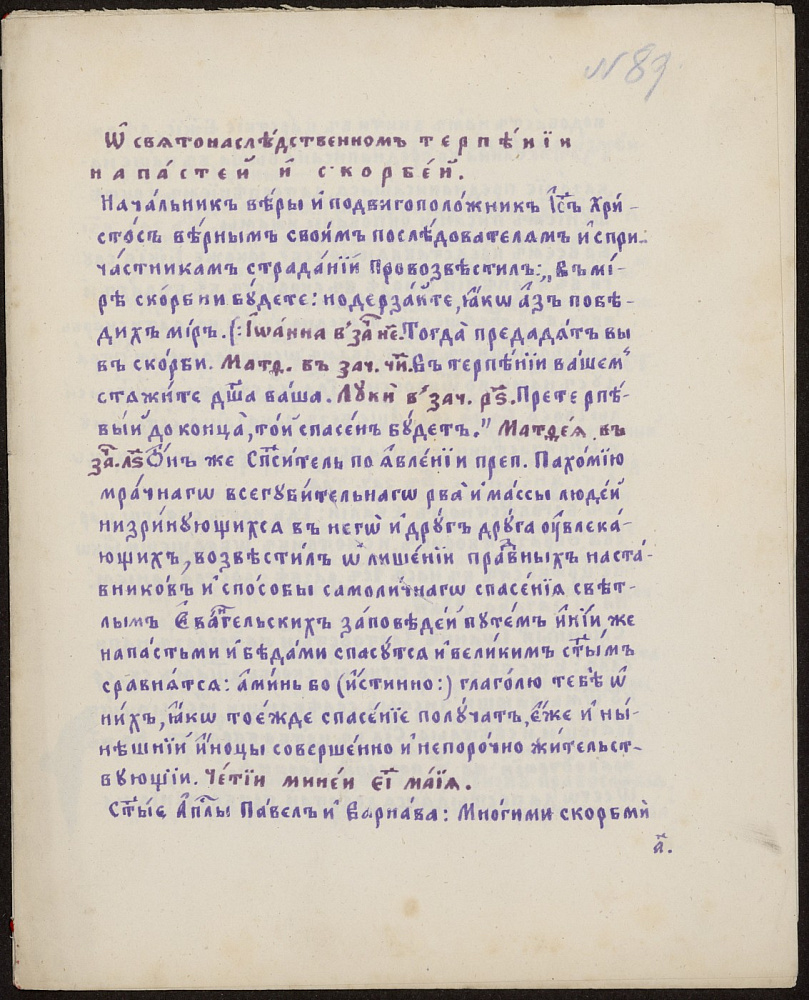 N 89
Ѿ святонаслѣ́дственномъ терпѣ́нїи
напа́стей и҆ скорбе́й.
Нача́льникъ вѣ́ры и҆ подвигополо́жникъ І҆с҃ъ Хрі-
сто́съ вѣ́рнымъ свои́мъ послѣ́дователямъ и҆ спри-
ча́стникамъ страда́нїй провозвѣсти́лъ: „Въ мі́-
рѣ ско́рбни бу́дете: но дерза́йте, ꙗ҆́кѡ а҆́зъ побѣ-
дихъ мі́ръ. (: І҆ѡа́нна в҃ за҃ н҃е. Тогда̀ предадя́тъ вы
въ ско́рби. Матѳ. въ зач. ч҃и. Въ терпѣ́нїи ва́шем"
стяжи́те дш҃а ва́ша. Лукѝ в҃ зач. р҃ѕ. Претерпѣ́-
вый до конца̀, то́й спасе́нъ бу́детъ." Матѳе́я въ
за҃. л҃ѕ Ѻ҆́нъ же Сп҃си́тель по ꙗ҆вле́нїи преп. Пахо́мїю
мра́чнагѡ всегуби́тельнагѡ рва̀ и҆ ма́ссы люде́й
низри́нующихся въ негѡ̀ и҆ дру́гъ дру́га ᲂу҆влека́-
ющихъ, возвѣсти́лъ ѡ҆ лише́нїи пра́вныхъ наста́-
внико́въ и҆ спо́собы самоли́чнагѡ спасе́нїя свѣ́т-
лымъ Є҆ва́гг҃ельскихъ за́повѣдей путе́мъ и҆ні́и же
напа́стьми и҆ бѣда́ми спасу́тся и҆ вели́кимъ ст҃ы́мъ
сравня́тся: а҆ми́нь бо (и҆́стинно:) глаго́лю тебѣ̀ ѡ҆
ни́хъ, ꙗ҆́кѡ то́ежде спасе́нїе полу́чатъ, є҆́же и҆ ны́-
нѣшнїи и҆́ноцы соверше́нно и҆ непоро́чно жи́тельст-
вующїи. Че́тїи мине́и є҃ı ма́їя.
Ст҃ы́е А҆п҃лы Па́велъ и҆ Варна́ва: Мно́гими скорбмѝ
а҃.